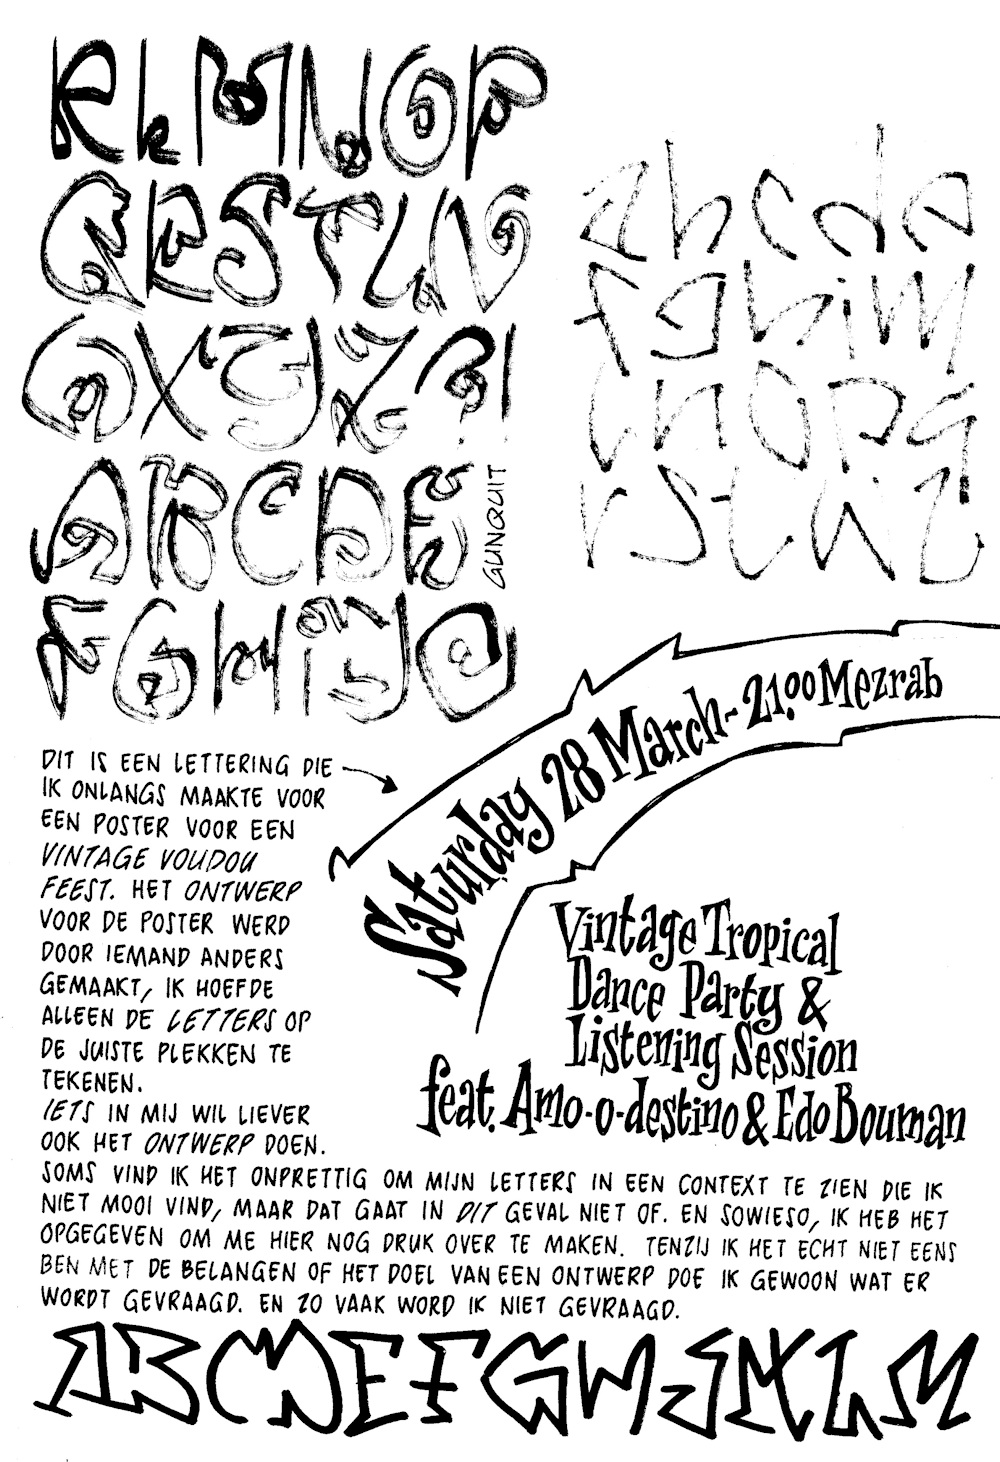 K k M N O P
Q R S T U V
W X Y Z ? !
A B C D E
F G H I J
GUNQUIT
a b c d e
f g h i m
l n o p q
r s t u i z
Saturday 28 March - 21.00 Mezrab
DIT IS EEN LETTERING DIE
IK ONLANGS MAAKTE VOOR
EEN POSTER VOOR EEN
VINTAGE VOUDOU
FEEST. HET ONTWERP
VOOR DE POSTER WERD
DOOR IEMAND ANDERS
GEMAAKT, IK HOEFDE
ALLEEN DE LETTERS OP
DE JUISTE PLEKKEN TE
TEKENEN.
IETS IN MIJ WIL LIEVER
OOK HET ONTWERP DOEN.
Vintage Tropical
Dance Party &
Listening Session
feat. Amo-o-destino & Edo Bouman
SOMS VIND IK HET ONPRETTIG OM MIJN LETTERS IN EEN CONTEXT TE ZIEN DIE IK
NIET MOOI VIND, MAAR DAT GAAT IN DIT GEVAL NIET OF. EN SOWIESO, IK HEB HET
OPGEGEVEN OM ME HIER NOG DRUK OVER TE MAKEN. TENZIJ IK HET ECHT NIET EENS
BEN MET DE BELANGEN OF HET DOEL VAN EEN ONTWERP DOE IK GEWOON WAT ER
WORDT GEVRAAGD. EN ZO VAAK WORD IK NIET GEVRAAGD.
A B C D E F G H I J K L M